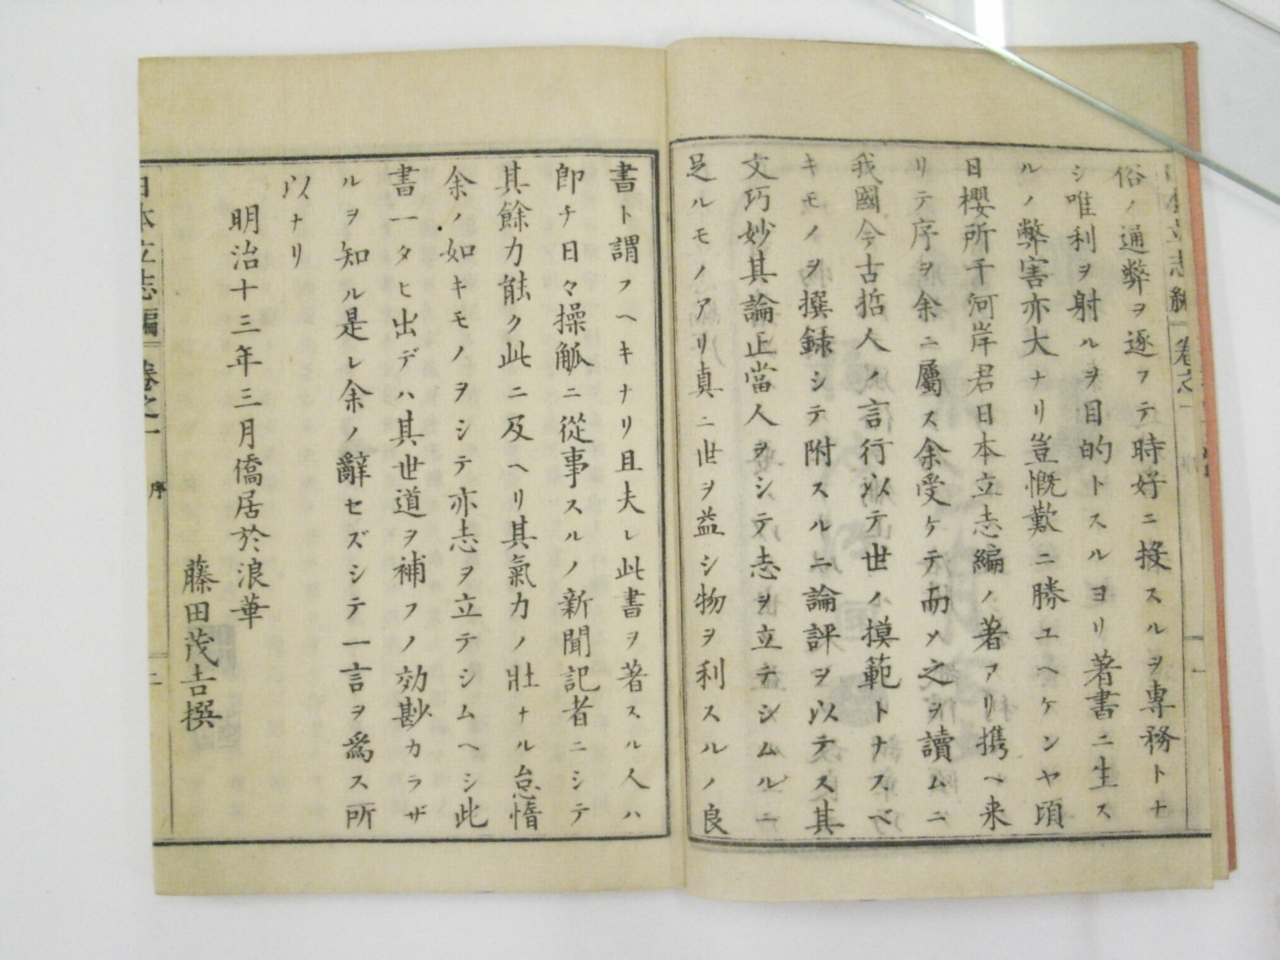 日本立志編 卷之一
一
俗ノ通弊ヲ逐フテ時好ニ投スルヲ專務トナ
シ唯利ヲ射ルヲ目的トスルヨリ著書ニ生ス
ルノ弊害亦大ナリ豈慨歎ニ勝ユヘケンヤ頃
日櫻所千河岸君日本立志編ノ著アリ携ヘ来
リテ序ヲ余ニ屬ス余受ケテ而メ之ヲ讀ムニ
我國今古哲人ノ言行以テ世ノ摸範トナスベ
キモノヲ撰録シテ附スルニ論評ヲ以テス其
文巧妙其論正當人ヲシテ志ヲ立テシムルニ
足ルモノアリ真ニ世ヲ益シ物ヲ利スルノ良
書ト謂フヘキナリ且夫レ此書ヲ著スル人ハ
即チ日々操觚ニ從事スルノ新聞記者ニシテ
其餘力能ク此ニ及ヘリ其氣力ノ壯ナル怠惰
余ノ如キモノヲシテ亦志ヲ立テシムヘシ此
書一タヒ出デハ其世道ヲ補フノ効尠カラザ
ルヲ知ル是レ余ノ辭セズシテ一言ヲ爲ス所
以ナリ
明治十三年三月僑居於浪華
藤田茂吉撰
日本立志編 卷之一 序
二